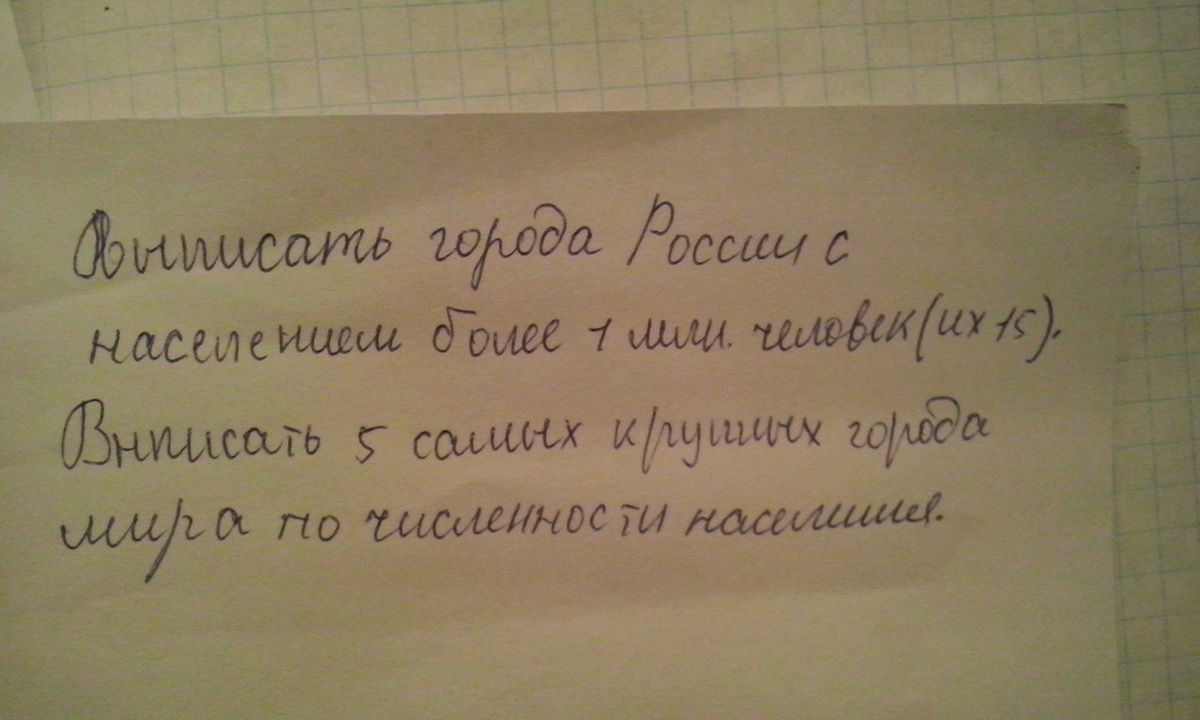 Выписать города России с
населением более 1 млн. человек (их 15).
Выписать 5 самых крупных города
мира по численности населения.